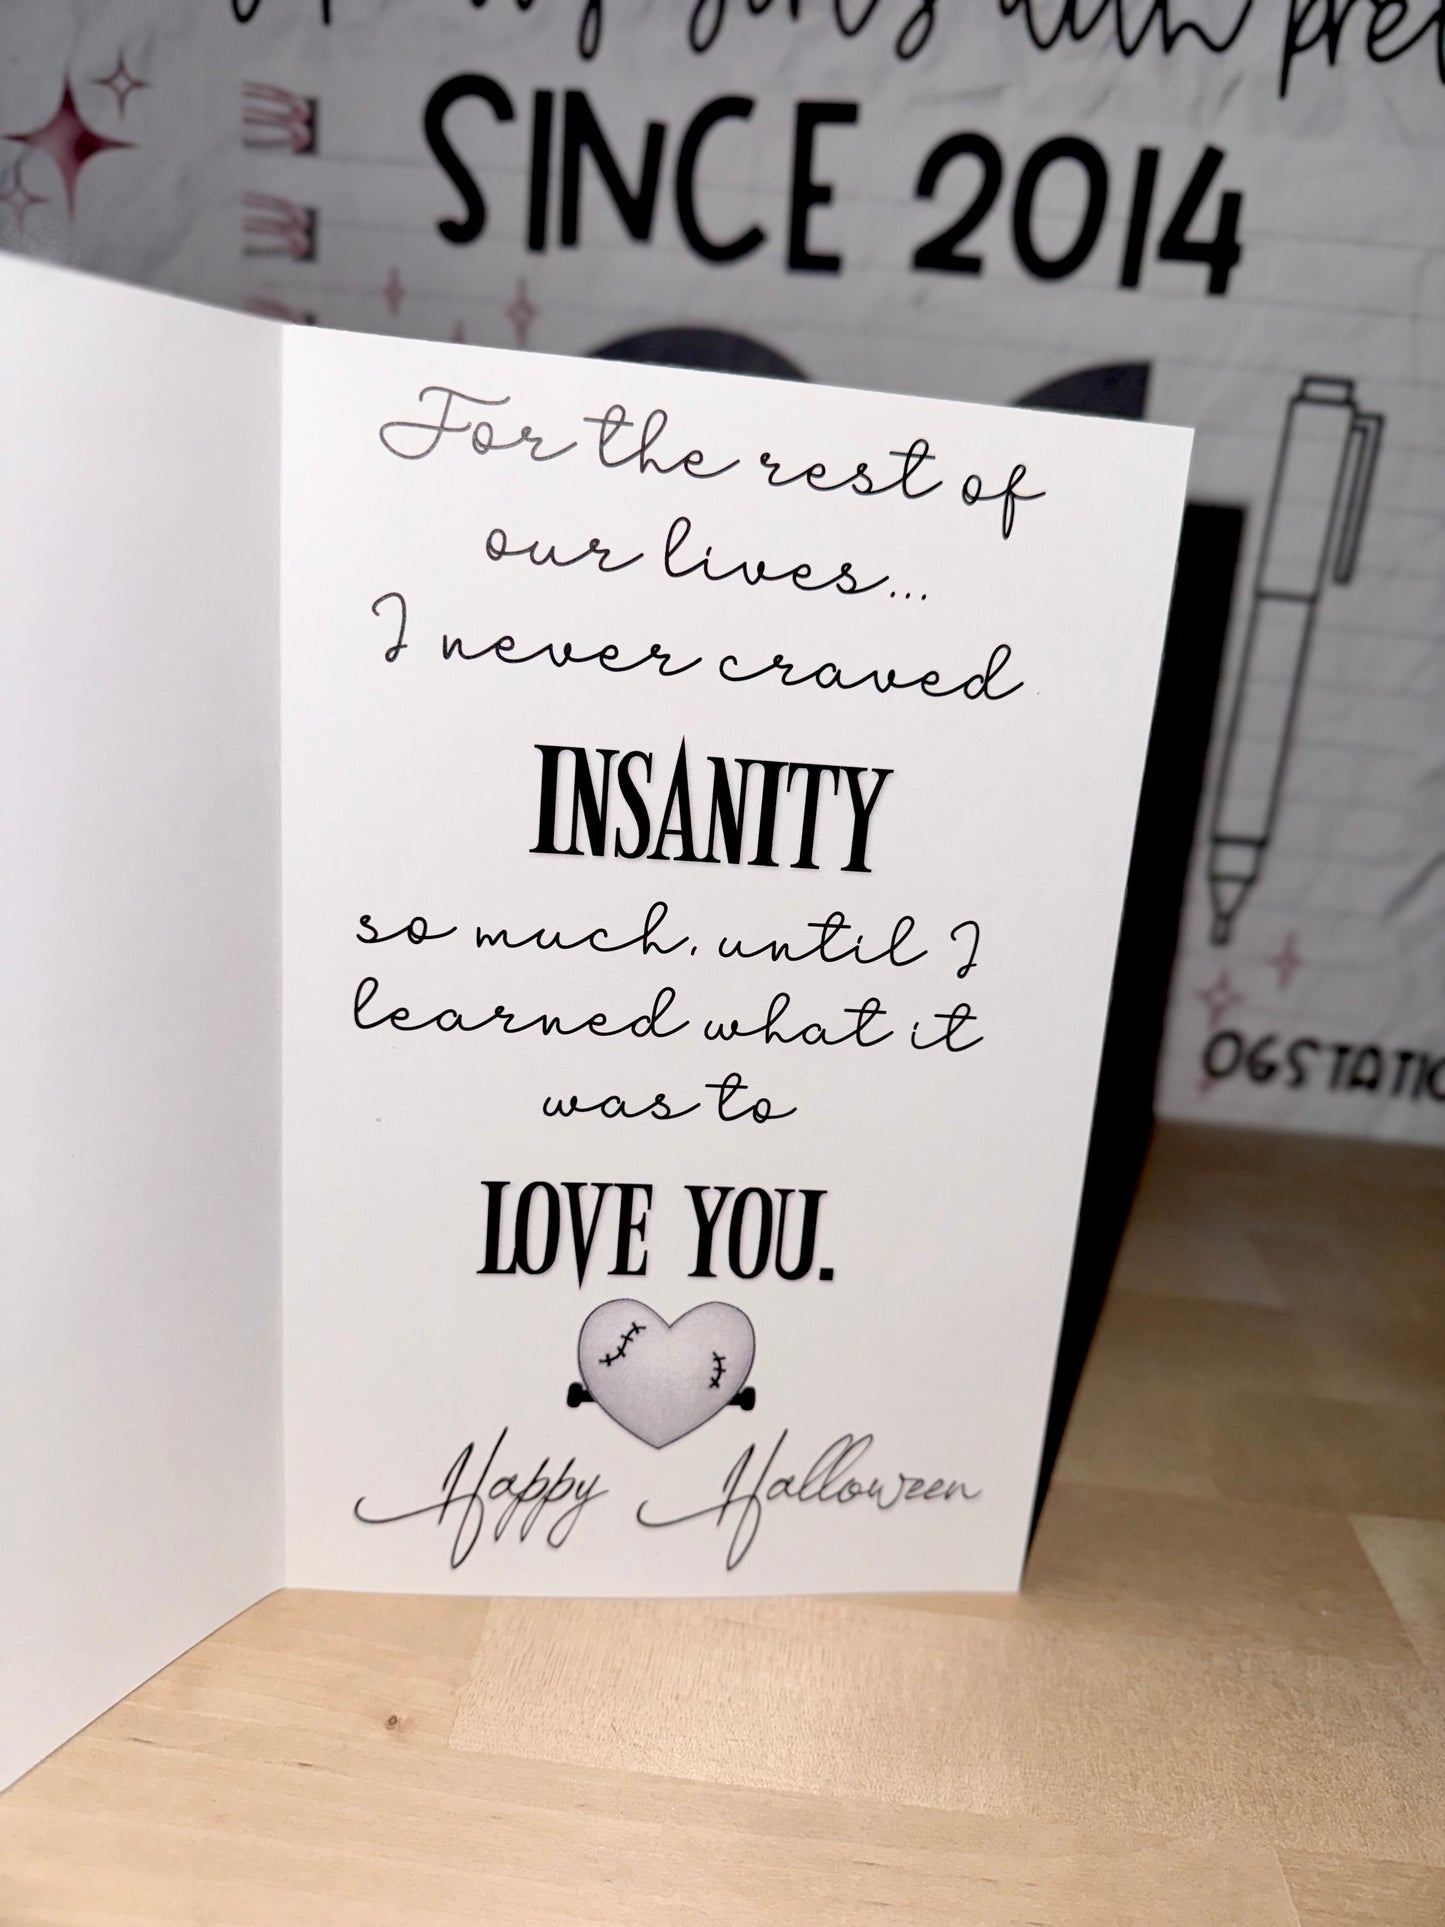 SINCE 2014
For the rest of
our lives...
I never craved
INSANITY
so much, until I
learned what it
was to
LOVE YOU.
Happy Halloween